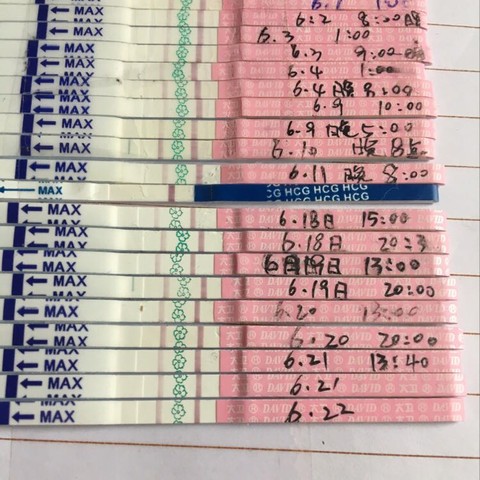 MAX 6.1
MAX 6.2 8:00晚
MAX 6.3 1:00
MAX 6.3 9:00晚
MAX 6.4 1:00
MAX 6.4 晚 8:00
MAX 6.9 10:00
MAX 6.9 晚 5:00
MAX 6.10 晚 8点
MAX 6.11 晚 8:00
MAX HCG HCG HCG
MAX 6.18日 15:00
MAX 6.18日 20:3
MAX 6月19日 13:00
MAX 6.19日 20:00
MAX 6.20 13:00
MAX 6.20 20:00
MAX 6.21 13:40
MAX 6.21
MAX 6.22